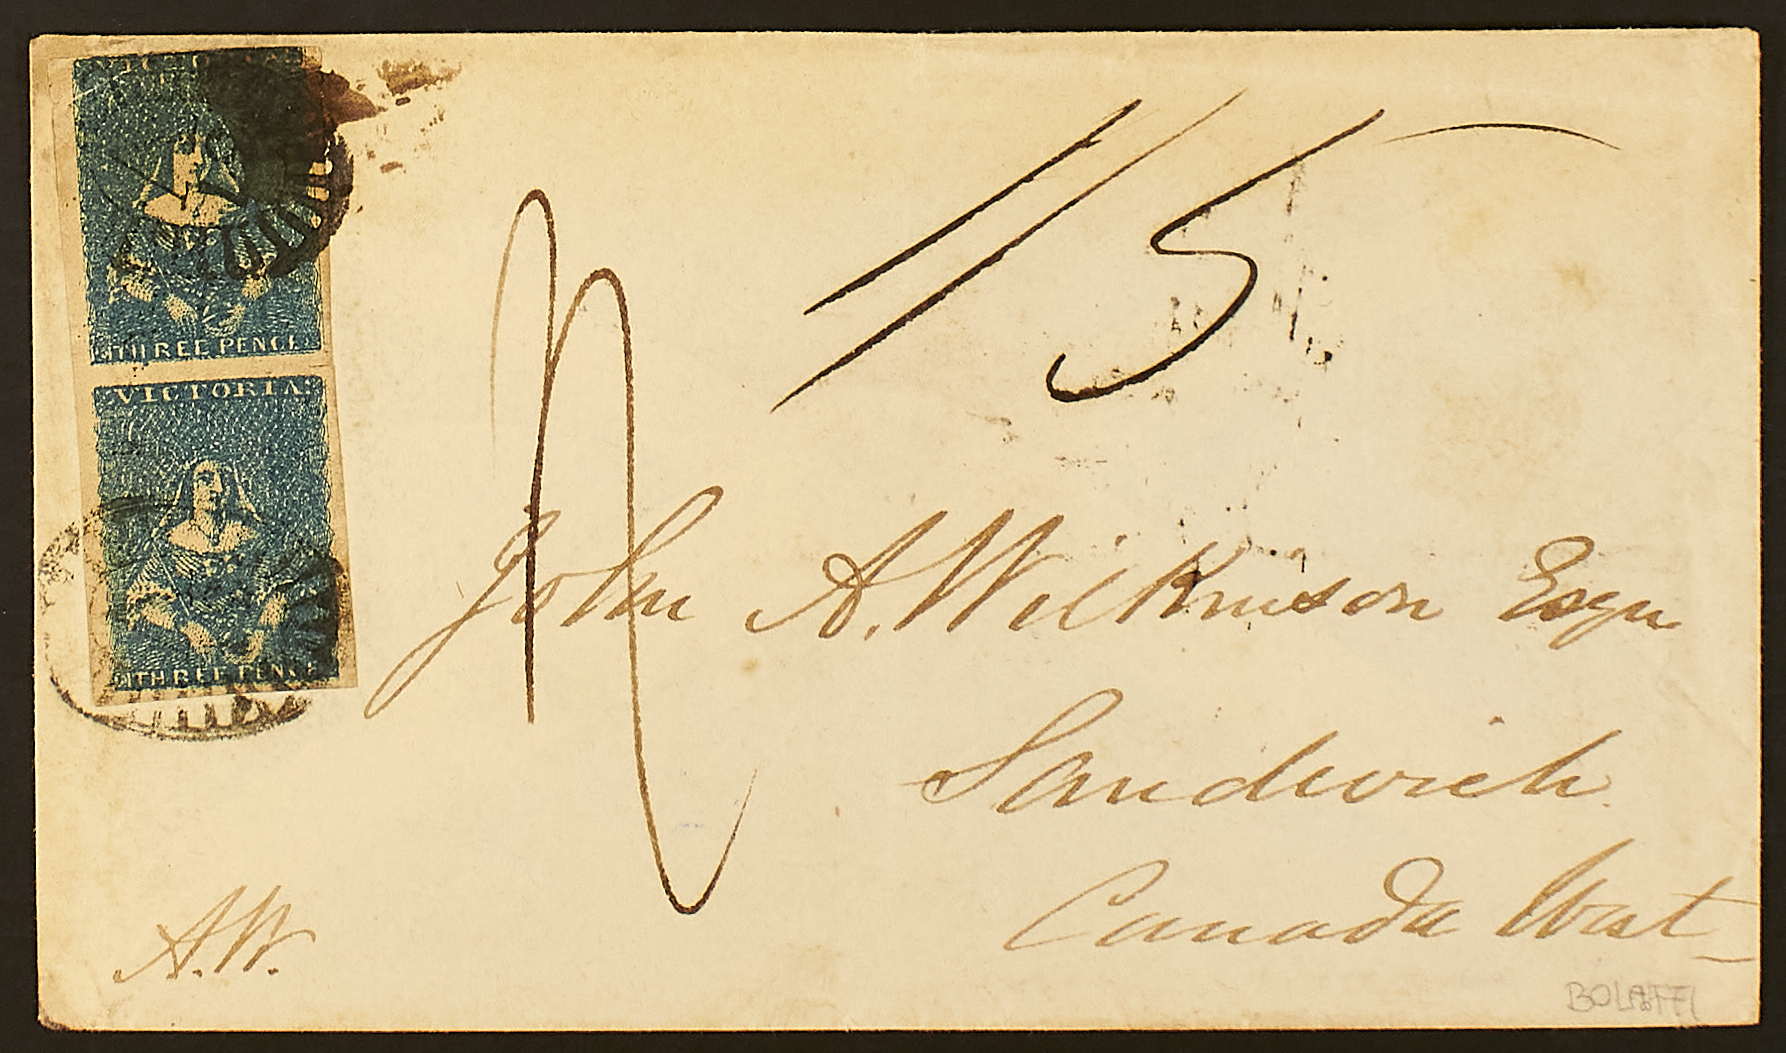 VICTORIA
THREE PENCE
VICTORIA
THREE PENCE
1/5
John A. Wilkinson Esqr
Sandwich
Canada West
A.W.
BOLAFFI